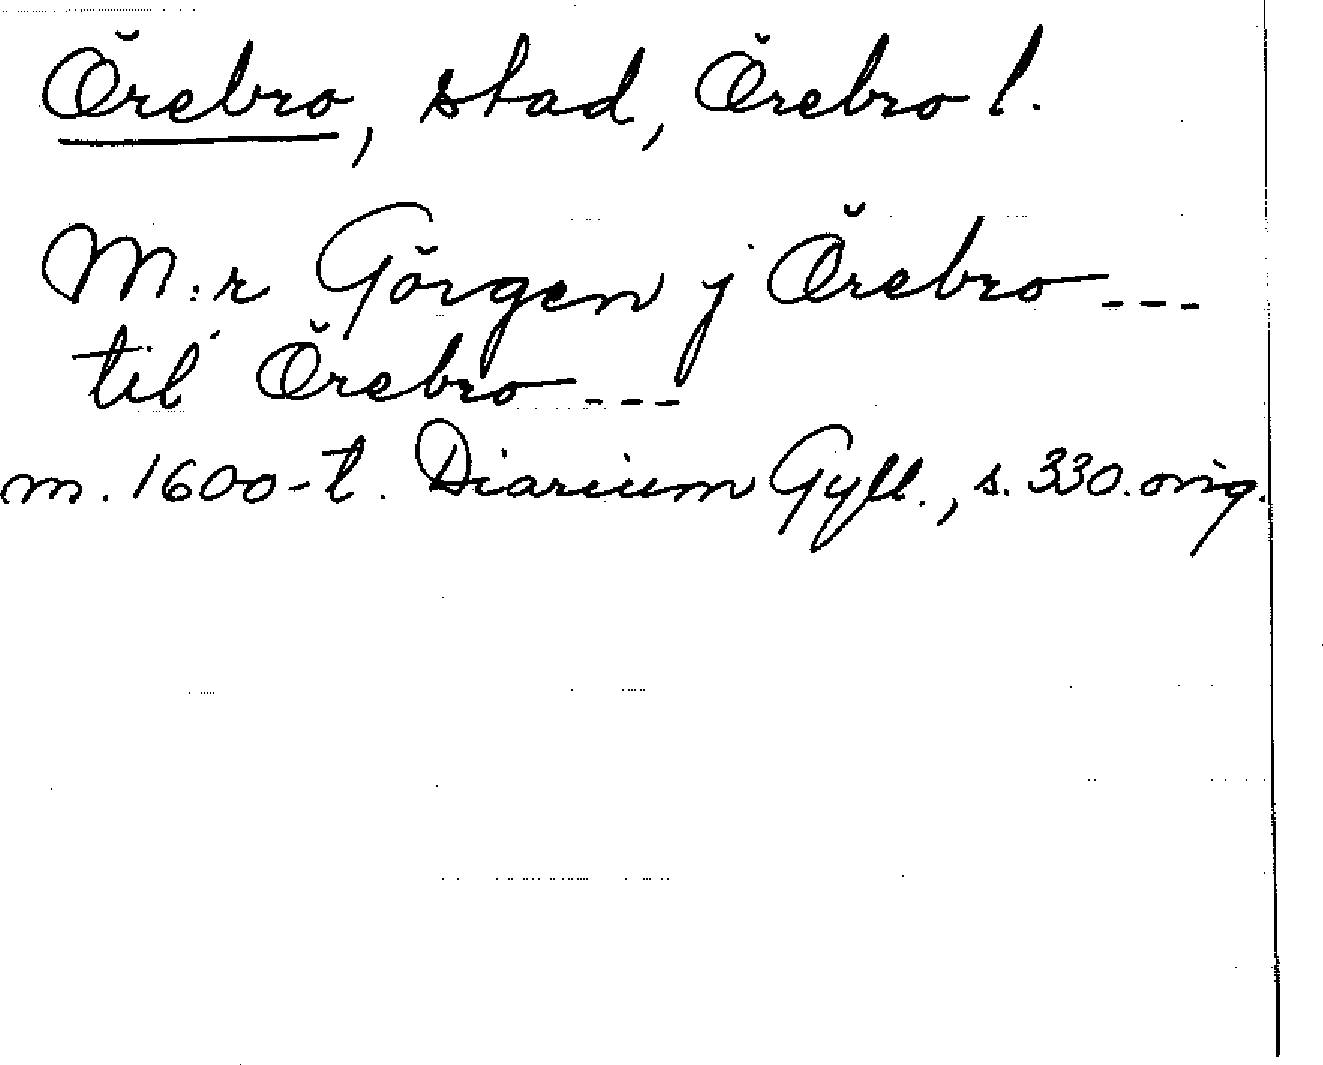 Örebro, stad, Örebro l.
M:r Görgen j Örebro---
til Örebro---
m. 1600-t. Diarium Gyll., s. 330. orig.